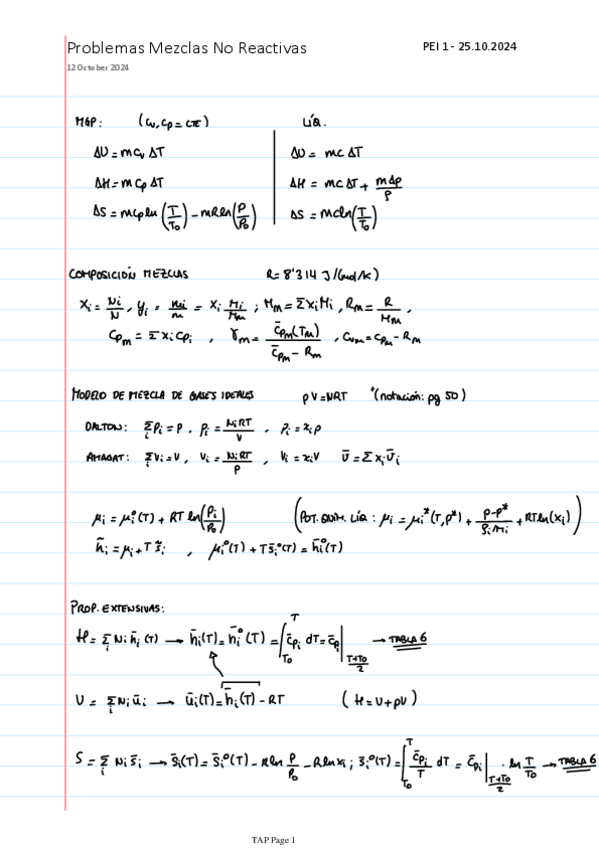 Problemas Mezclas No Reactivas
PEI 1 - 25.10.2024
12 October 2024
MGP: (cv, cp = CTE)
LÍQ.
ΔU = m cv ΔT
ΔU = m c ΔT
ΔH = m cp ΔT
ΔH = m c ΔT + mΔp/ρ
ΔS = m cp ln(T/T₀) - m R ln(P/P₀)
ΔS = m c ln(T/T₀)
COMPOSICIÓN MEZCLAS R = 8'314 J/(mol/K)
xi = Ni/N, yi = mi/m = xi Mi/Mm; Mm = Σ xi Mi, Rm = R/Mm,
Cpm = Σ xi cpi, γm = c̄pm(Tm)/(c̄pm - Rm), cvm = cpm - Rm
MODELO DE MEZCLA DE GASES IDEALES pV = NRT *(notación: pg 50)
DALTON: Σi Pi = P, Pi = NiRT/V, Pi = xi p
AMAGAT: Σi Vi = V, Vi = NiRT/P, Vi = xi V v̄ = Σ xi v̄i
μi = μi°(T) + RT ln(Pi/P₀) (POT. QUÍM. LÍQ: μi = μi*(T,p*) + (p-p*)/(ρi/Mi) + RT ln(xi))
h̄i = μi + T s̄i, μi°(T) + T s̄i°(T) = h̄i°(T)
PROP. EXTENSIVAS:
H = Σi Ni h̄i(T) → h̄i(T) = h̄i°(T) = ∫T₀T c̄pi dT = c̄pi|(T+T₀)/2 → TABLA 6
U = Σi Ni ūi → ūi(T) = h̄i(T) - RT (H = U + pV)
S = Σi Ni s̄i → s̄i(T) = s̄i°(T) - R ln P/P₀ - R ln xi; s̄i°(T) = ∫T₀T c̄pi/T dT = c̄pi|(T+T₀)/2 · ln T/T₀ → TABLA 6
TAP Page 1